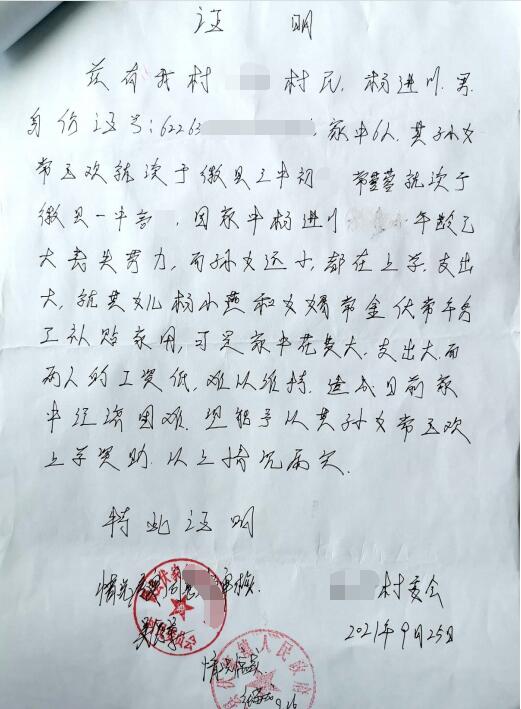 证 明
兹有我村 村民,杨进川.男.
身份证号:62263 ,家中6人.其孙女
常玉欢就读于徽县三中初 常莹莹就读于
徽县一中高 .因家中杨进川 年龄已
大丧失劳力,而孙女还小,都在上学.支出
大,就其女儿杨小燕和女婿常金伏常年务
工补贴家用,可是家中花费大,支出大.而
两人的工资低,难以维持.造成目前家
中经济困难.望能予以其孙女常玉欢
上学资助.以上情况属实.
特此证明
情况属实 同意 审核.
村委会
2021年9月25日
情况属实
人民政府